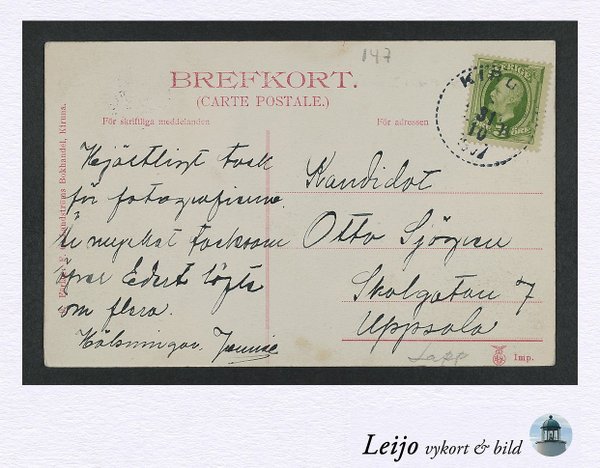 147
BREFKORT.
(CARTE POSTALE.)
För skriftliga meddelanden
För adressen
SVERIGE
KIRU
31
10
Bokhandel, Kiruna.
Hjärtligt tack
för fotografierna.
är mycket tacksam
öfver Edert löfte
om flera.
Hälsningar.
Kandidat
Otto Sjögren
Skolgatan 7
Uppsala
Lapp
Imp.
Leijo vykort & bild